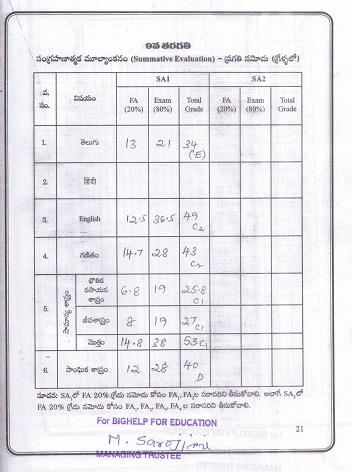 9వ తరగతి
సంగ్రహణాత్మక మూల్యాంకనం (Summative Evaluation) – ప్రగతి నమోదు (గ్రేళ్ళలో)
SA1 SA2
వ. సం. విషయం FA (20%) Exam (80%) Total Grade FA (20%) Exam (80%) Total Grade
1. తెలుగు 13 21 34 (E)
2. हिंदी
3. English 12.5 36.5 49 C2
4. గణితం 14.7 28 43 C2
5. భౌతిక రసాయన శాస్త్రం 6.8 19 25.8 C1
జీవశాస్త్రం 8 19 27 C1
మొత్తం 14.8 38 53 C1
6. సాంఘిక శాస్త్రం 12 28 40 D
సూచన: SA1లో FA 20% గ్రేడు నమోదు కోసం FA1, FA2ల సరాసరిని తీసుకోవాలి. అలాగే SA2లో
FA 20% గ్రేడు నమోదు కోసం FA1, FA2, FA3, FA4ల సరాసరిని తీసుకోవాలి.
For BIGHELP FOR EDUCATION
21
M. Sarojini
MANAGING TRUSTEE